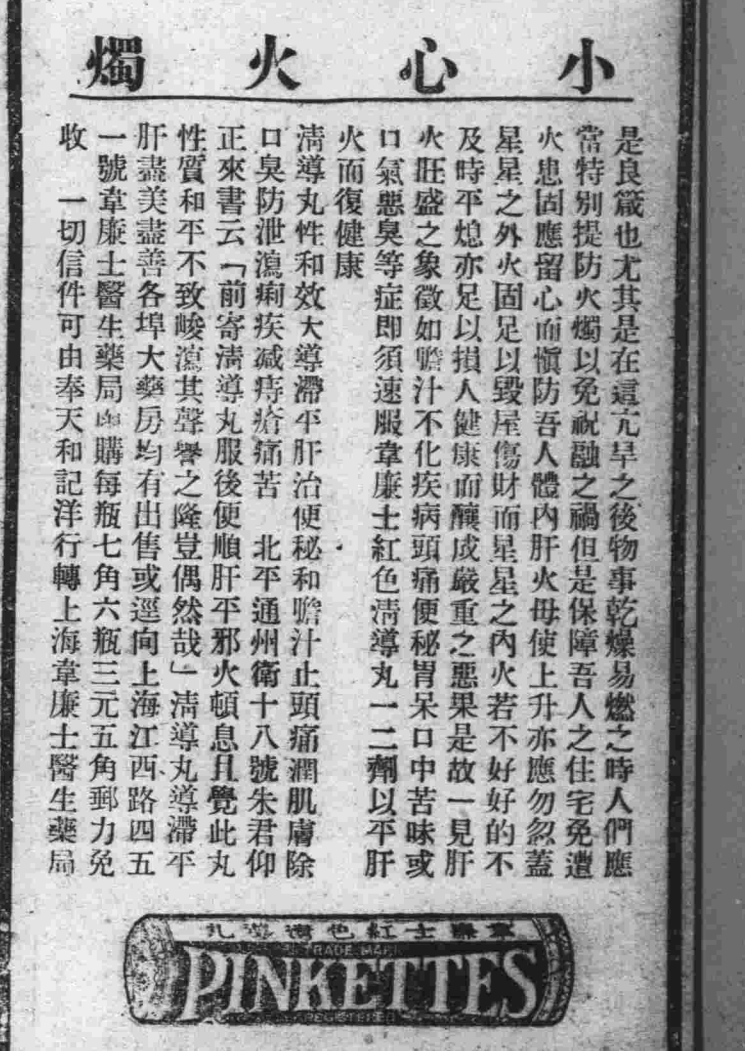 小心火燭
是良箴也尤其是在這亢旱之後物事乾燥易燃之時人們應
當特別提防火燭以免祝融之禍但是保障吾人之住宅免遭
火患固應留心而愼防吾人體內肝火毋使上升亦應勿忽蓋
星星之外火固足以毀屋傷財而星星之內火若不好好的不
及時平熄亦足以損人健康而釀成嚴重之惡果是故一見肝
火旺盛之象徵如膽汁不化疾病頭痛便秘胃呆口中苦味或
口氣惡臭等症即須速服韋廉士紅色淸導丸一二劑以平肝
火而復健康
淸導丸性和效大導滯平肝治便秘和膽汁止頭痛潤肌膚除
口臭防泄瀉痢疾減痔瘡痛苦 北平通州衛十八號朱君仰
正來書云「前寄淸導丸服後便順肝平邪火頓息且覺此丸
性質和平不致峻瀉其聲譽之隆豈偶然哉」淸導丸導滯平
肝盡美盡善各埠大藥房均有出售或逕向上海江西路四五
一號韋廉士醫生藥局函購每瓶七角六瓶三元五角郵力免
收 一切信件可由奉天和記洋行轉上海韋廉士醫生藥局
韋廉士紅色淸導丸
TRADE MARK
PINKETTES
REGISTERED